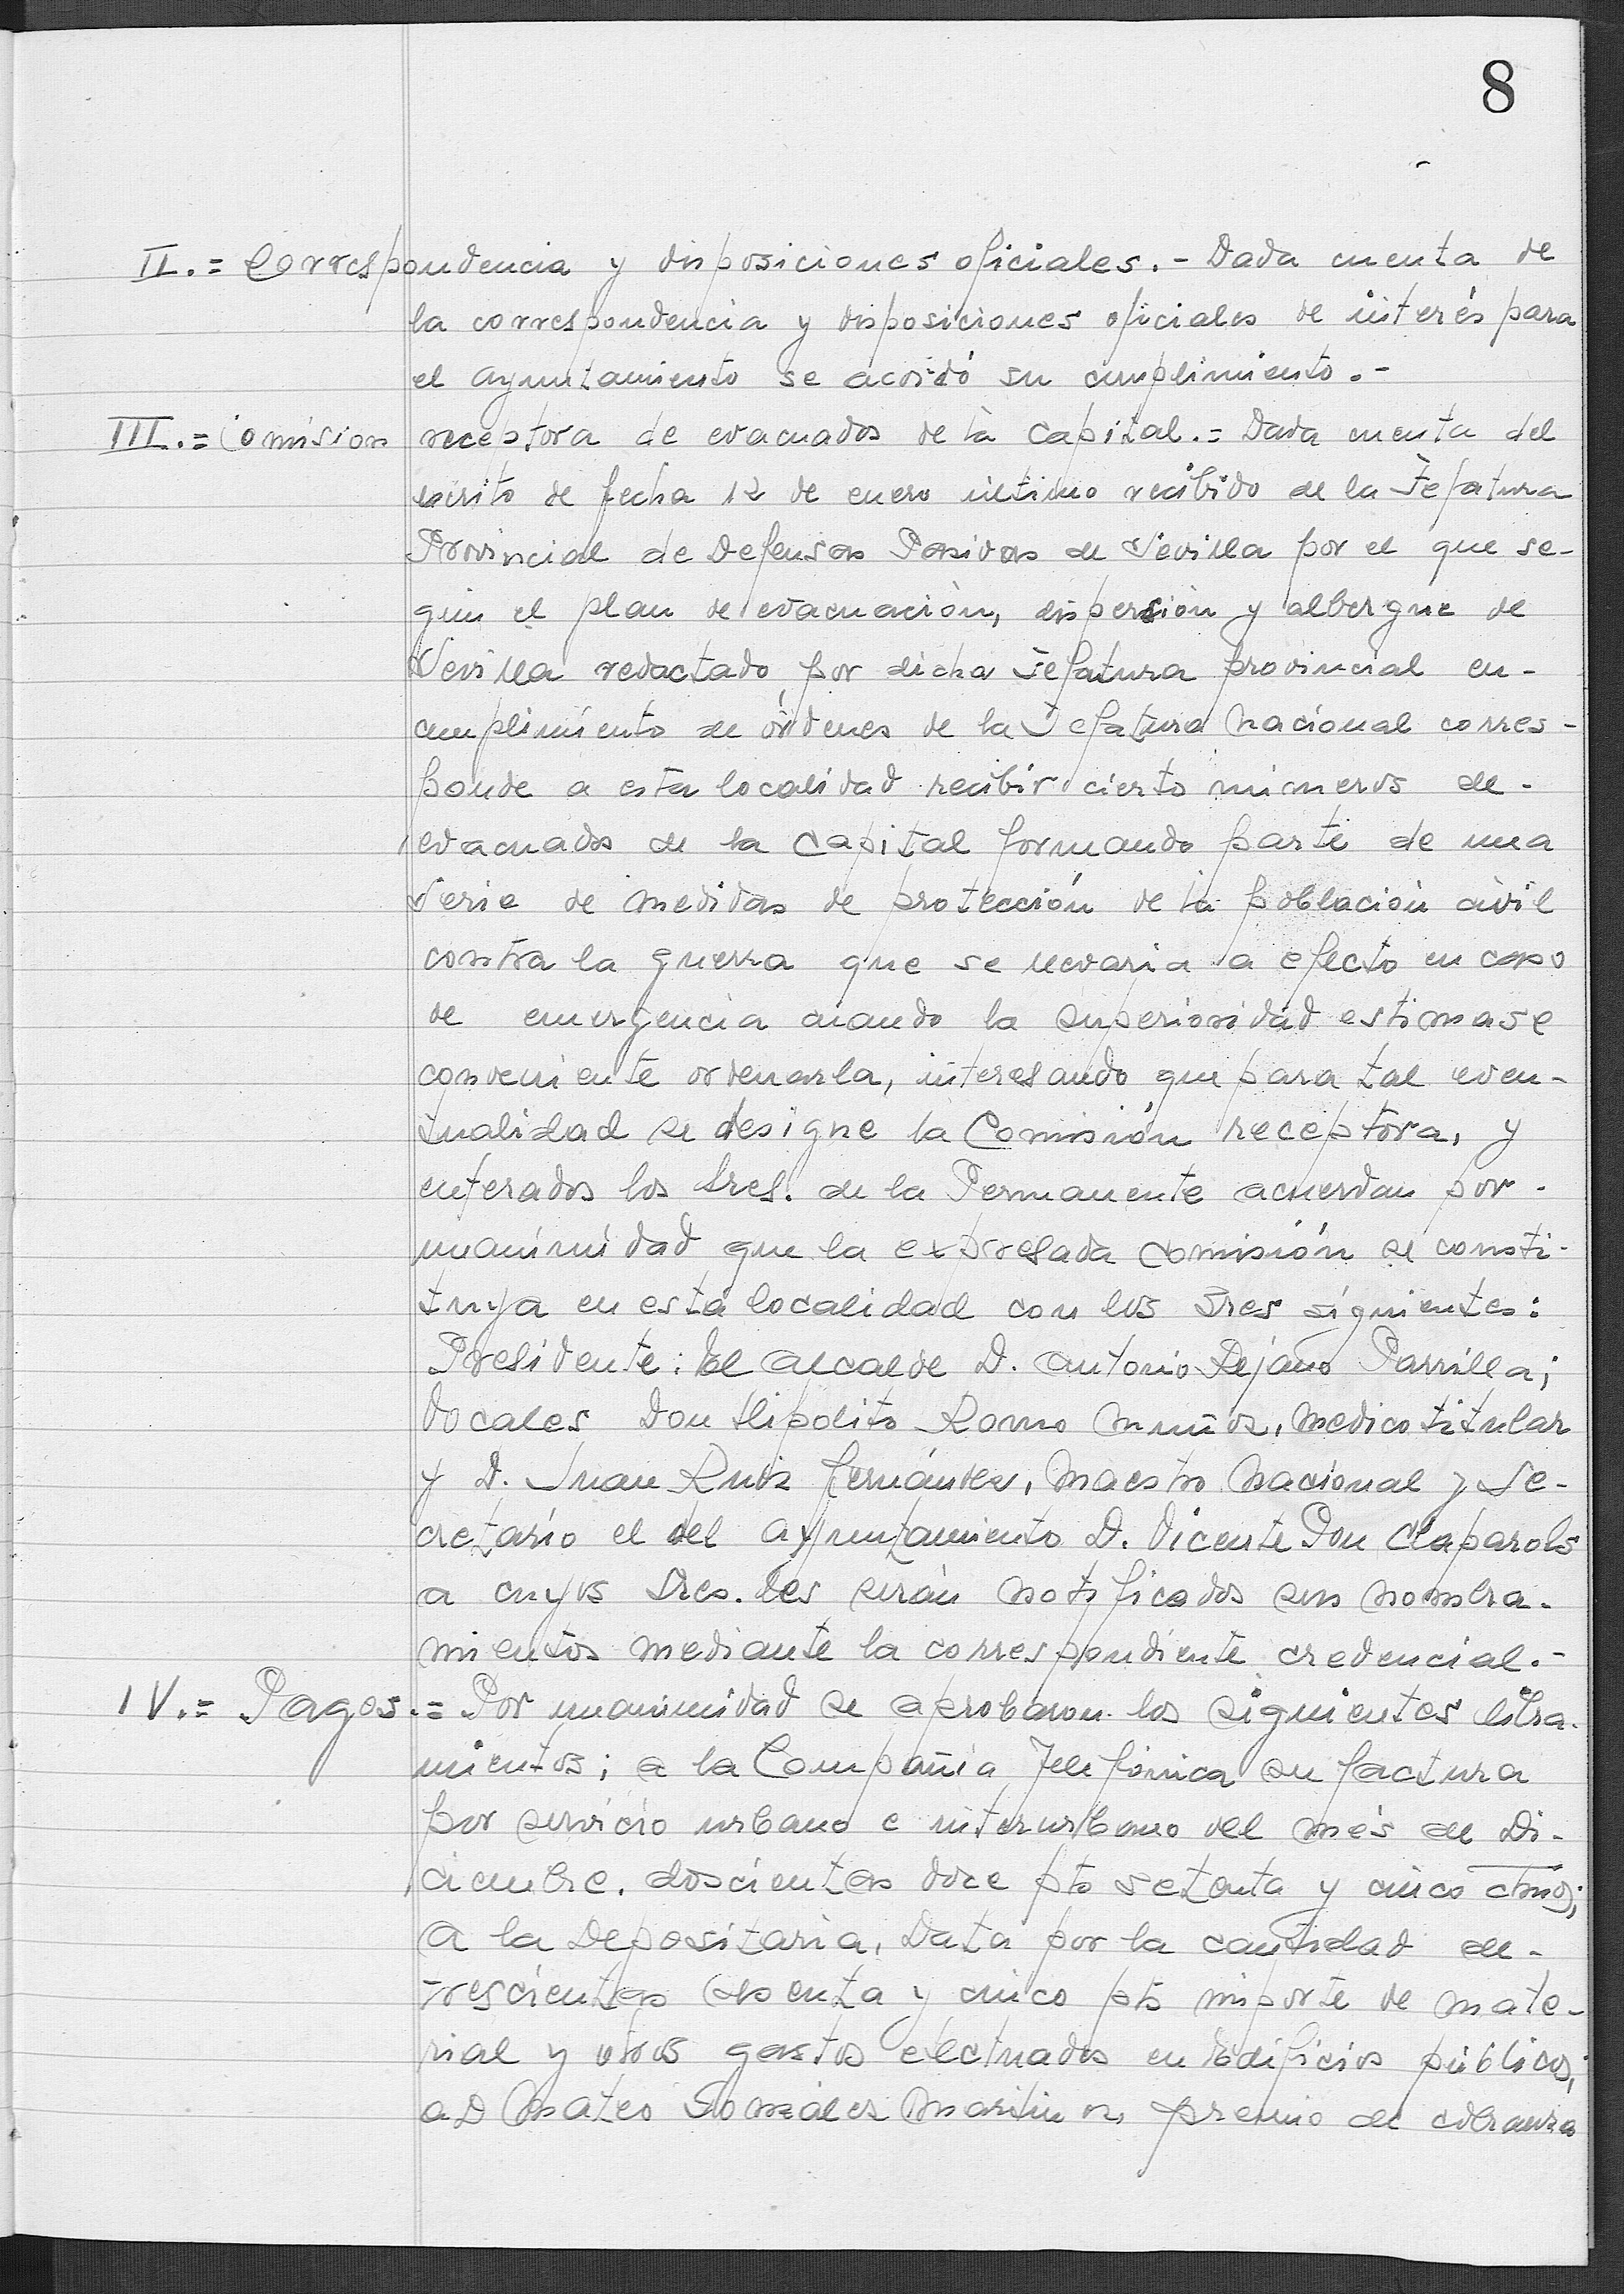 8
II.= Correspondencia y disposiciones oficiales.- Dada cuenta de
la correspondencia y disposiciones oficiales de interés para
el Ayuntamiento se acordó su cumplimiento.-
III.= Comision receptora de evacuados de la Capital.= Dada cuenta del
escrito de fecha 12 de enero último recibido de la Jefatura
Provincial de Defensas Pasivas de Sevilla por el que se-
gún el plan de evacuación, dispersión y albergue de
Sevilla redactado por dicha Jefatura provincial en-
cumplimiento de órdenes de la Jefatura Nacional corres-
ponde a esta localidad recibir cierto números de-
evacuados de la Capital formando parte de una
Serie de medidas de protección de la población civil
contra la guerra que se llevaria a efecto en caso
de emergencia cuando la superioridad estimase
conveniente ordenarla, interesando que para tal even-
tualidad se designe la Comisión receptora, y
enterados los Sres. de la Permanente acuerdan por-
unanimidad que la expresada Comisión se consti-
tuya en esta localidad con los Sres siguientes:
Presidente: El Alcalde D. Antonio Dejaño Parrilla;
Vocales Don Hipolito Romo Muñoz, Medico titular
y D. Juan Ruiz Fernández, Maestro Nacional y Se-
cretario el del Ayuntamiento D. Vicente Pou Claparols
a cuyos Sres. les serán notificados sus nombra-
mientos mediante la correspondiente credencial.-
IV.= Pagos.= Por unanimidad se aprobaron los siguientes libra-
mientos; a la Compañia Telefónica su factura
por servicio urbano e interurbano del més de Di-
ciembre, doscientas doce pts setenta y cinco ctmos;
A la Depositaría, Data por la cantidad de-
trescientas ochenta y cinco pts importe de mate-
rial y otros gastos efectuados en Edificios públicos;
a D Mateo González Martin premio de cobranza